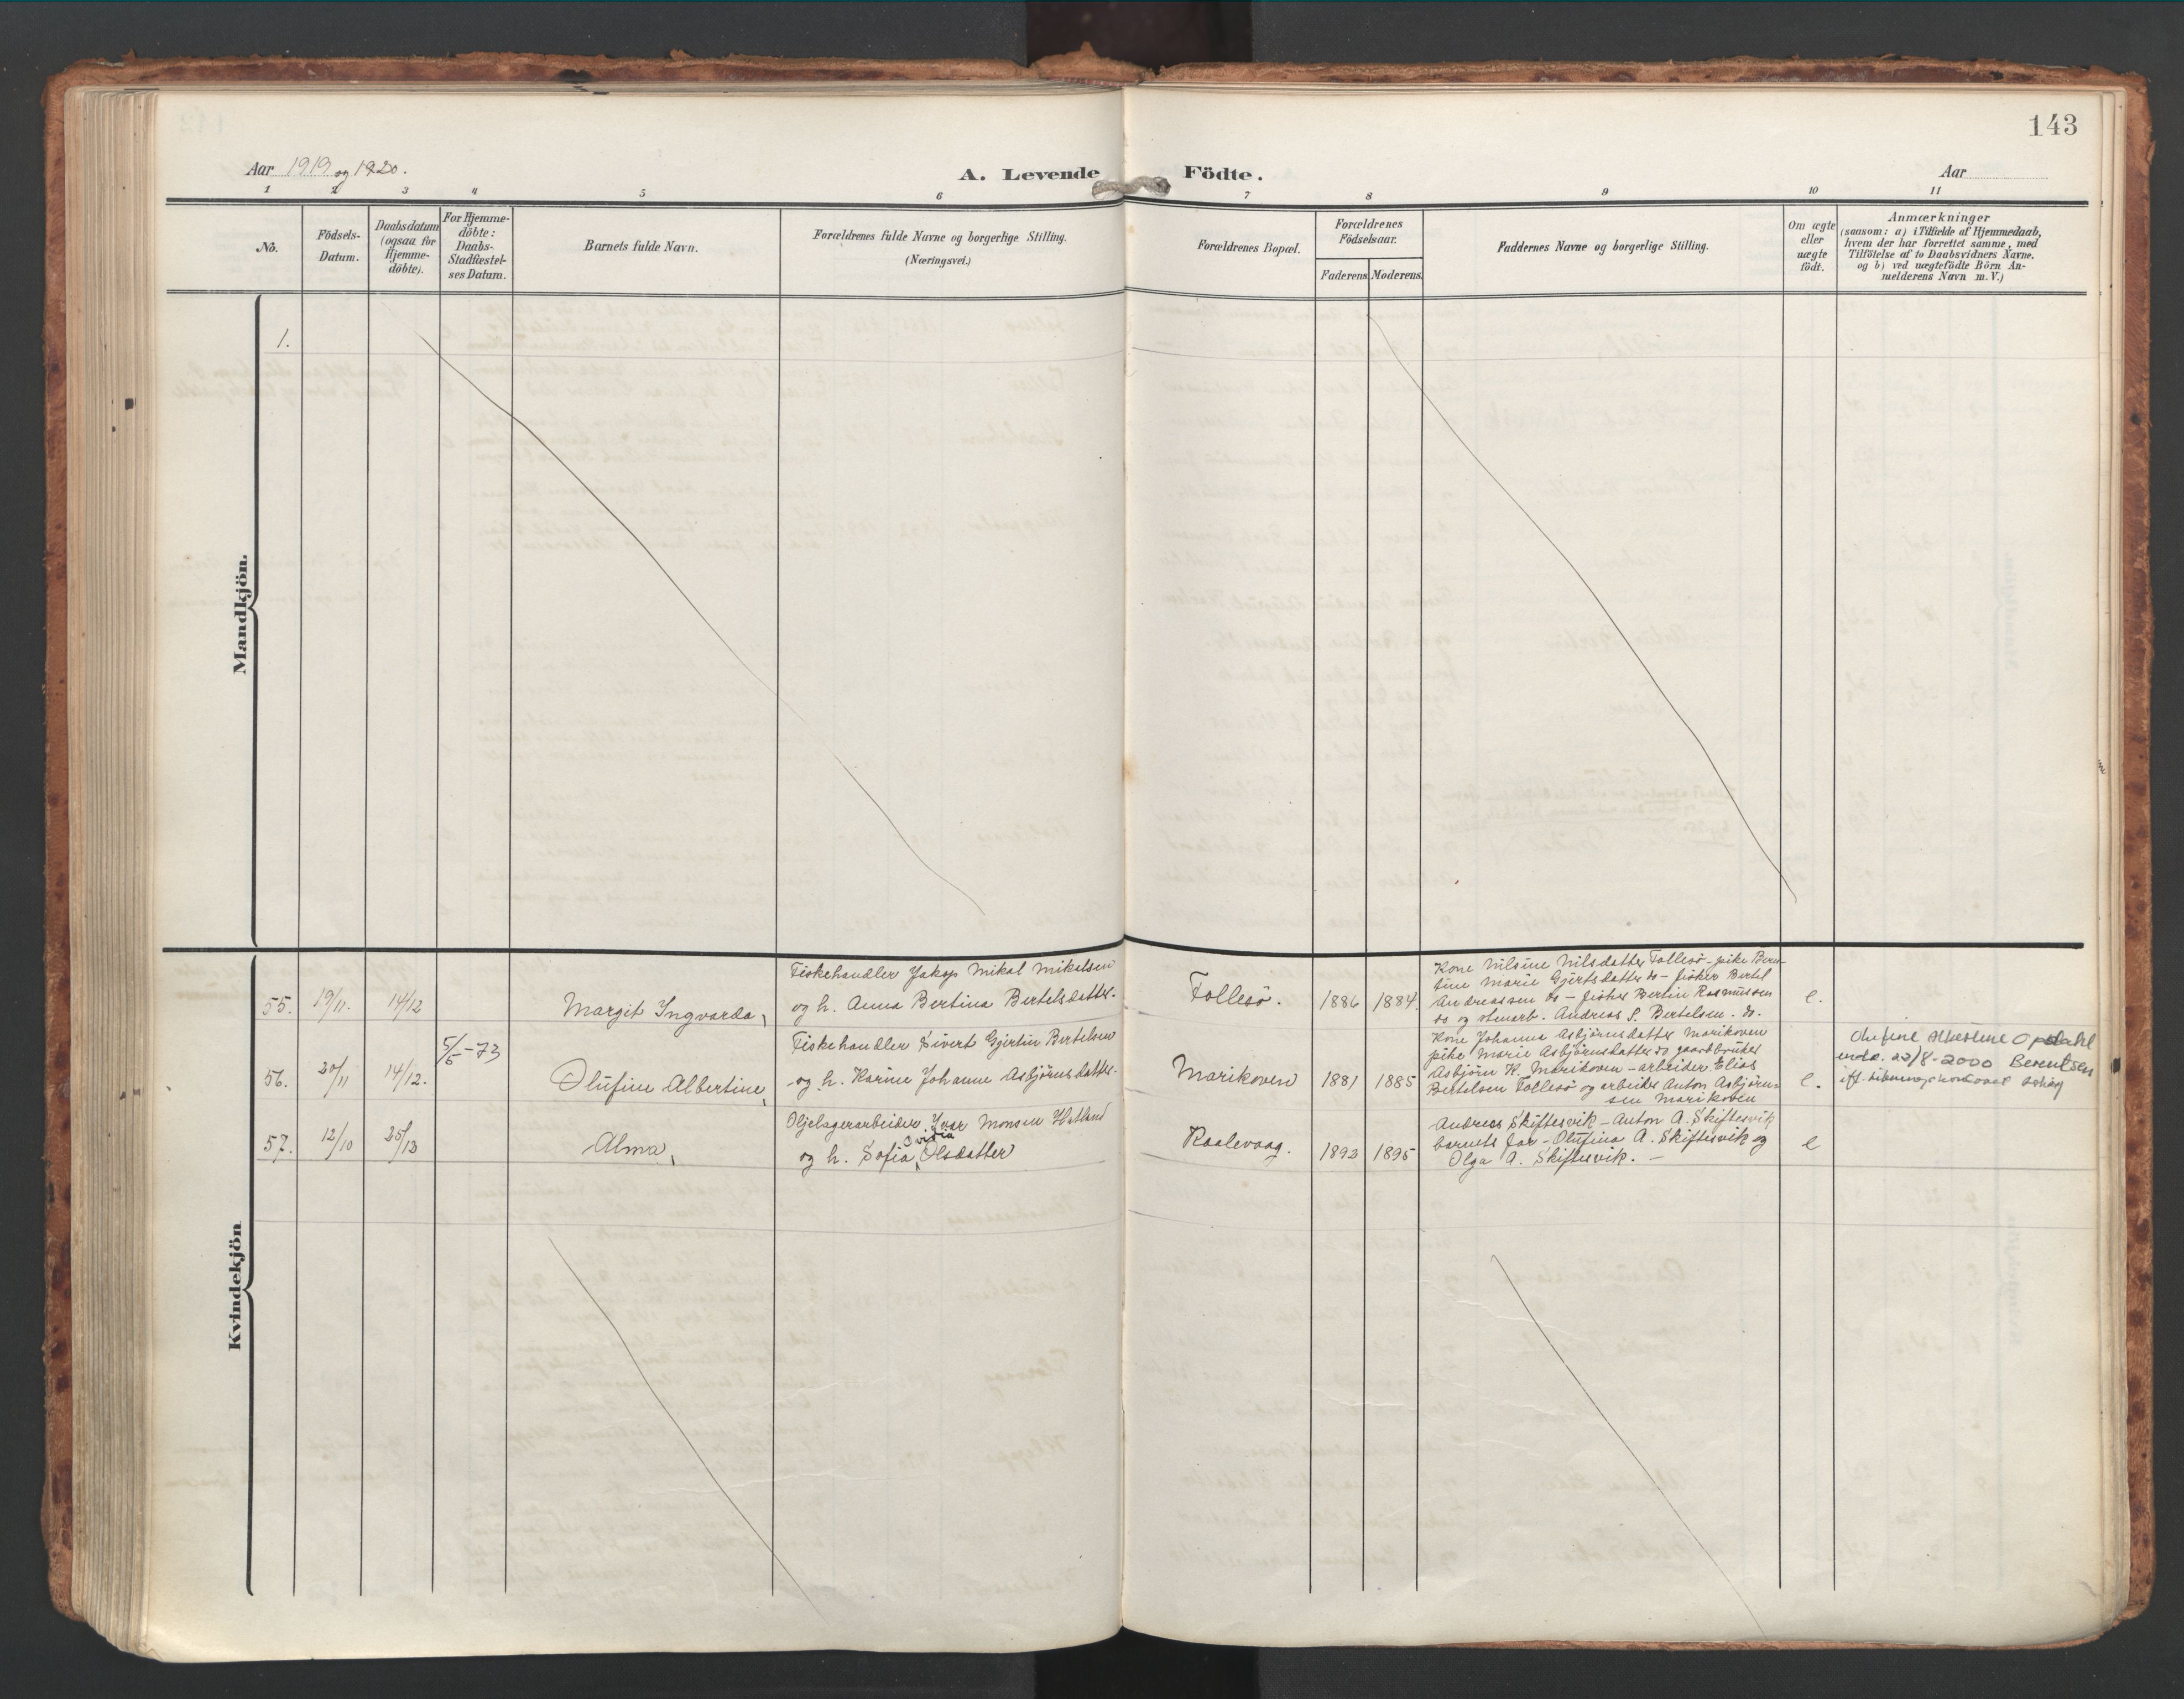 143
Aar 1919 og 1920.
A. Levende Födte.
Aar
1 2 3 4 5 6 7 8 9 10 11
No.
Födsels-
Datum.
Daabsdatum
(ogsaa for
Hjemme-
döbte).
For Hjemme-
döbte:
Daabs-
Stadfæstel-
ses Datum.
Barnets fulde Navn.
Forældrenes fulde Navne og borgerlige Stilling.
(Næringsvei.)
Forældrenes Bopæl.
Forældrenes
Födselsaar.
Faderens. Moderens.
Faddernes Navne og borgerlige Stilling.
Om ægte
eller
uægte
födt.
Anmærkninger
(saasom: a) i Tilfælde af Hjemmedaab,
hvem der har forrettet samme, med
Tilföielse af to Daabsvidners Navne.
og b) ved uægtefödte Börn An-
melderens Navn m.V.)
Mandkjön.
1.
Kvindekjön
55. 19/11. 14/12
Margit Ingvarda,
Fiskehandler Jakop Mikal Mikelsen
og h. Anna Bertina Bertelsdatter.
Follesö.
1886 1884.
Kone Nilsine Nilsdatter Follesö - pike Beren-
tine Marie Gjertsdatter do - fisker Bertel
Andreassen do - fisker Bertin Rasmussen
do og stenarb. Andreas S. Bertelsen. do.
e.
56. 20/11 14/12. 5/5-73
Olufine Albertine,
Fiskehandler Sivert Gjertin Bertelsen
og h. Karine Johanne Asbjörnsdatter.
Marikoven
1881 1885
Kone Johanna Asbjörnsdatter Marikoven
pike Marie Asbjörnsdatter do gaardbruker
Asbjörn K. Marikoven - arbeider Elias
Bertelsen Follesö og arbeider Anton Asbjörn-
sen Marikoven
e.
Olufine Albertine Opdahl
endr. 22/8-2000 Berentsen
iflg. likningskontoret Askøy
57. 12/10 25/12
Alma,
Oljelagerarbeider Ivar Monsen Hatland
og h. Sofia Ovidia Olsdatter
Raalevaag.
1893 1895
Andreas Skiftesvik - Anton A. Skiftesvik
barnets far - Olufina A. Skiftesvik og
Olga A. Skiftesvik. -
e